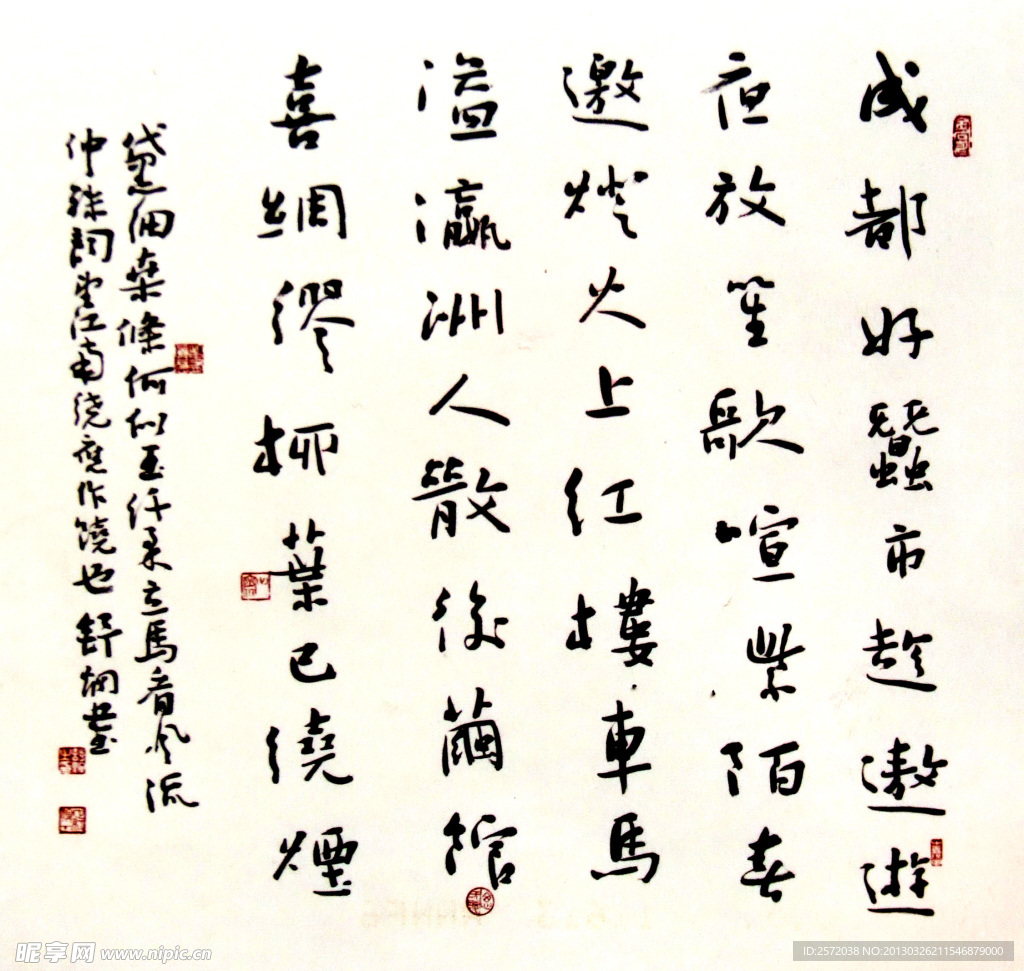 成都好蠶市趁遨遊
夜放笙歌喧紫陌春
邀燈火上紅樓車馬
溢瀛洲人散後繭館
喜綢繆柳葉已繞煙
黛細桑條何似玉纤柔立馬看風流
仲殊詞望江南繞應作饒也 舒炯書
昵享网 www.nipic.cn
ID:2572038 NO:20130326211546879000